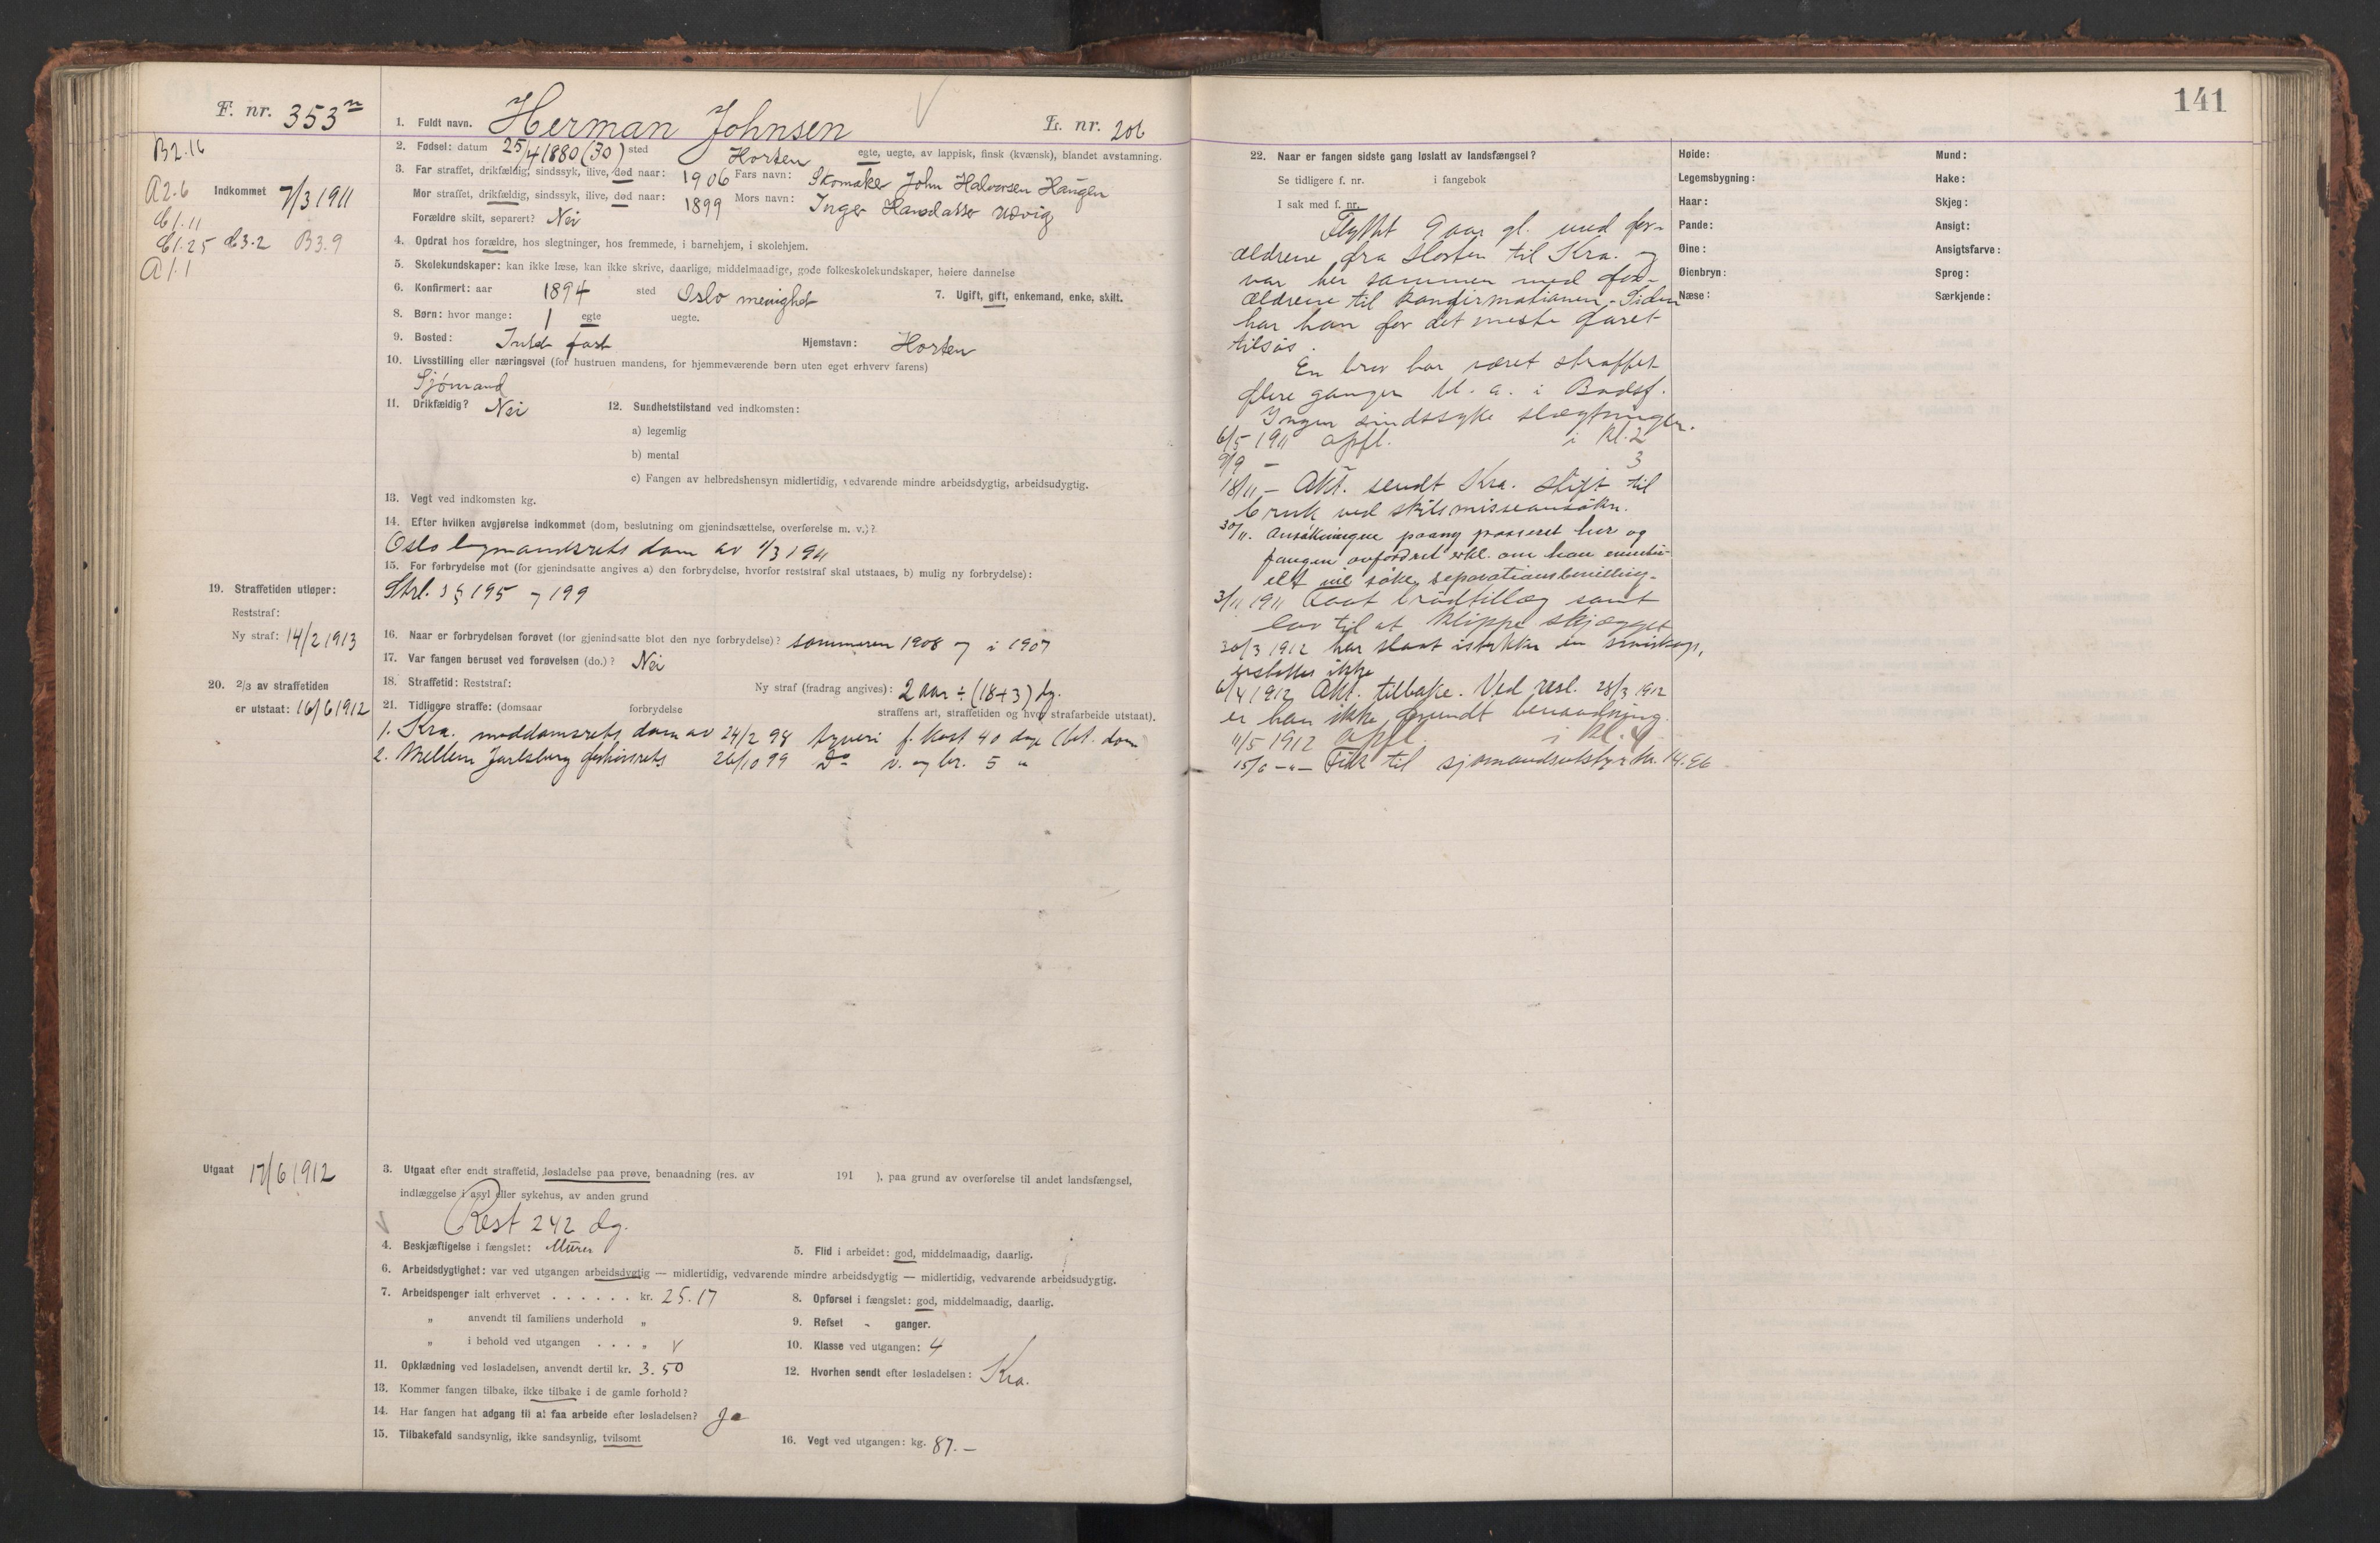 F. nr. 353
B2.16
A2.6 Indkommet 7/3 1911
C1.11
C1.25 C3.2 B3.9
A1.1
1. Fuldt navn. Herman Johnsen L. nr. 206
2. Fødsel: datum 25/4 1880 (30) sted Horten egte, uegte, av lappisk, finsk (kvænsk), blandet avstamning.
3. Far straffet, drikfældig, sindssyk, ilive, død naar: 1906 Fars navn: Skomaker John Halvorsen Haugen
Mor straffet, drikfældig, sindssyk, ilive, død naar: 1899 Mors navn: Inger
Forældre skilt, separert? Nei
4. Opdrat hos forældre, hos slegtninger, hos fremmede, i barnehjem, i skolehjem.
5. Skolekundskaper: kan ikke læse, kan ikke skrive, daarlige, middelmaadige, gode folkeskolekundskaper, høiere dannelse
6. Konfirmert: aar 1894 sted Oslo menighet 7. Ugift, gift, enkemand, enke, skilt.
8. Børn: hvor mange: 1 egte uegte.
9. Bosted: Intet fast Hjemstavn: Horten
10. Livsstilling eller næringsvei (for hustruen mandens, for hjemmeværende børn uten eget erhverv farens)
Sjømand
11. Drikfældig? Nei 12. Sundhetstilstand ved indkomsten:
a) legemlig
b) mental
c) Fangen av helbredshensyn midlertidig, vedvarende mindre arbeidsdygtig, arbeidsudygtig.
13. Vegt ved indkomsten kg.
14. Efter hvilken avgjørelse indkommet (dom, beslutning om gjenindsættelse, overførelse m. v.)?
Oslo lagmandsrets dom av 1/3 1911
15. For forbrydelse mot (for gjenindsatte angives a) den forbrydelse, hvorfor reststraf skal utstaaes, b) mulig ny forbrydelse):
Strl. §§ 195 og 199
19. Straffetiden utløper:
Reststraf:
Ny straf: 14/2 1913
16. Naar er forbrydelsen forøvet (for gjenindsatte blot den nye forbrydelse)? sommeren 1908 og i 1907
17. Var fangen beruset ved forøvelsen (do.)? Nei
18. Straffetid: Reststraf: Ny straf (fradrag angives): 2 aar ÷ (18+3) dg.
20. 2/3 av straffetiden
er utstaat: 16/6 1912
21. Tidligere straffe: (domsaar forbrydelse straffens art, straffetiden og hvor strafarbeide utstaat).
1. Kra. meddomsrets dom av 24/2 98 tyveri f. kost 40 dage (bet. dom
2. Mellem Jarlsberg forhørsrets 26/10 99 Do v. og br. 5 "
Utgaat 17/6 1912
3. Utgaat efter endt straffetid, løsladelse paa prøve, benaadning (res. av 191 ), paa grund av overførelse til andet landsfængsel,
indlæggelse i asyl eller sykehus, av anden grund
Rest 242 dg.
4. Beskjæftigelse i fængslet: Murer 5. Flid i arbeidet: god, middelmaadig, daarlig.
6. Arbeidsdygtighet: var ved utgangen arbeidsdygtig — midlertidig, vedvarende mindre arbeidsdygtig — midlertidig, vedvarende arbeidsudygtig.
7. Arbeidspenger ialt erhvervet . . . . . . kr. 25.17 8. Opførsel i fængslet: god, middelmaadig, daarlig.
„ anvendt til familiens underhold „ 9. Refset - ganger.
„ i behold ved utgangen . . . „ 10. Klasse ved utgangen: 4
11. Opklædning ved løsladelsen, anvendt dertil kr. 3.50 12. Hvorhen sendt efter løsladelsen: Kra.
13. Kommer fangen tilbake, ikke tilbake i de gamle forhold?
14. Har fangen hat adgang til at faa arbeide efter løsladelsen? Ja
15. Tilbakefald sandsynlig, ikke sandsynlig, tvilsomt 16. Vegt ved utgangen: kg. 87.-
141
22. Naar er fangen sidste gang løslatt av landsfængsel?
Se tidligere f. nr. i fangebok
I sak med f. nr.
Flyttet 9 aar gl. med for-
ældrene fra Horten til Kra. og
var her sammen med for-
ældrene til konfirmationen. Siden
har han for det meste faret
tilsjøs.
En bror har været straffet
flere ganger bl. a. i Bodsf.
Ingen sindssyke slægtninger.
6/5 1911 opfl. i kl. 2
9/9 - 3
18/11 - Akt. sendt Kra. stift til
bruk ved skilsmisseansøkn.
30/11. Ansøkningen paany passeret her og
fangen avfordret erkl. om han eventu-
elt vil søke separationsbevilling.
3/11 1911 Faat brødtillæg samt
lov til at klippe skjægget
20/3 1912 har slaat istykker en
erstattes ikke
6/4 1912 Akt. tilbake. Ved resl. 28/3 1912
er han ikke forundt benaadning.
11/5 1912 opfl. i kl. 4
15/6 -"- Fik til sjømandsutstyr kr. 14.26
Høide: Mund:
Legemsbygning: Hake:
Haar: Skjeg:
Pande: Ansigt:
Øine: Ansigtsfarve:
Øienbryn: Sprog:
Næse: Særkjende: